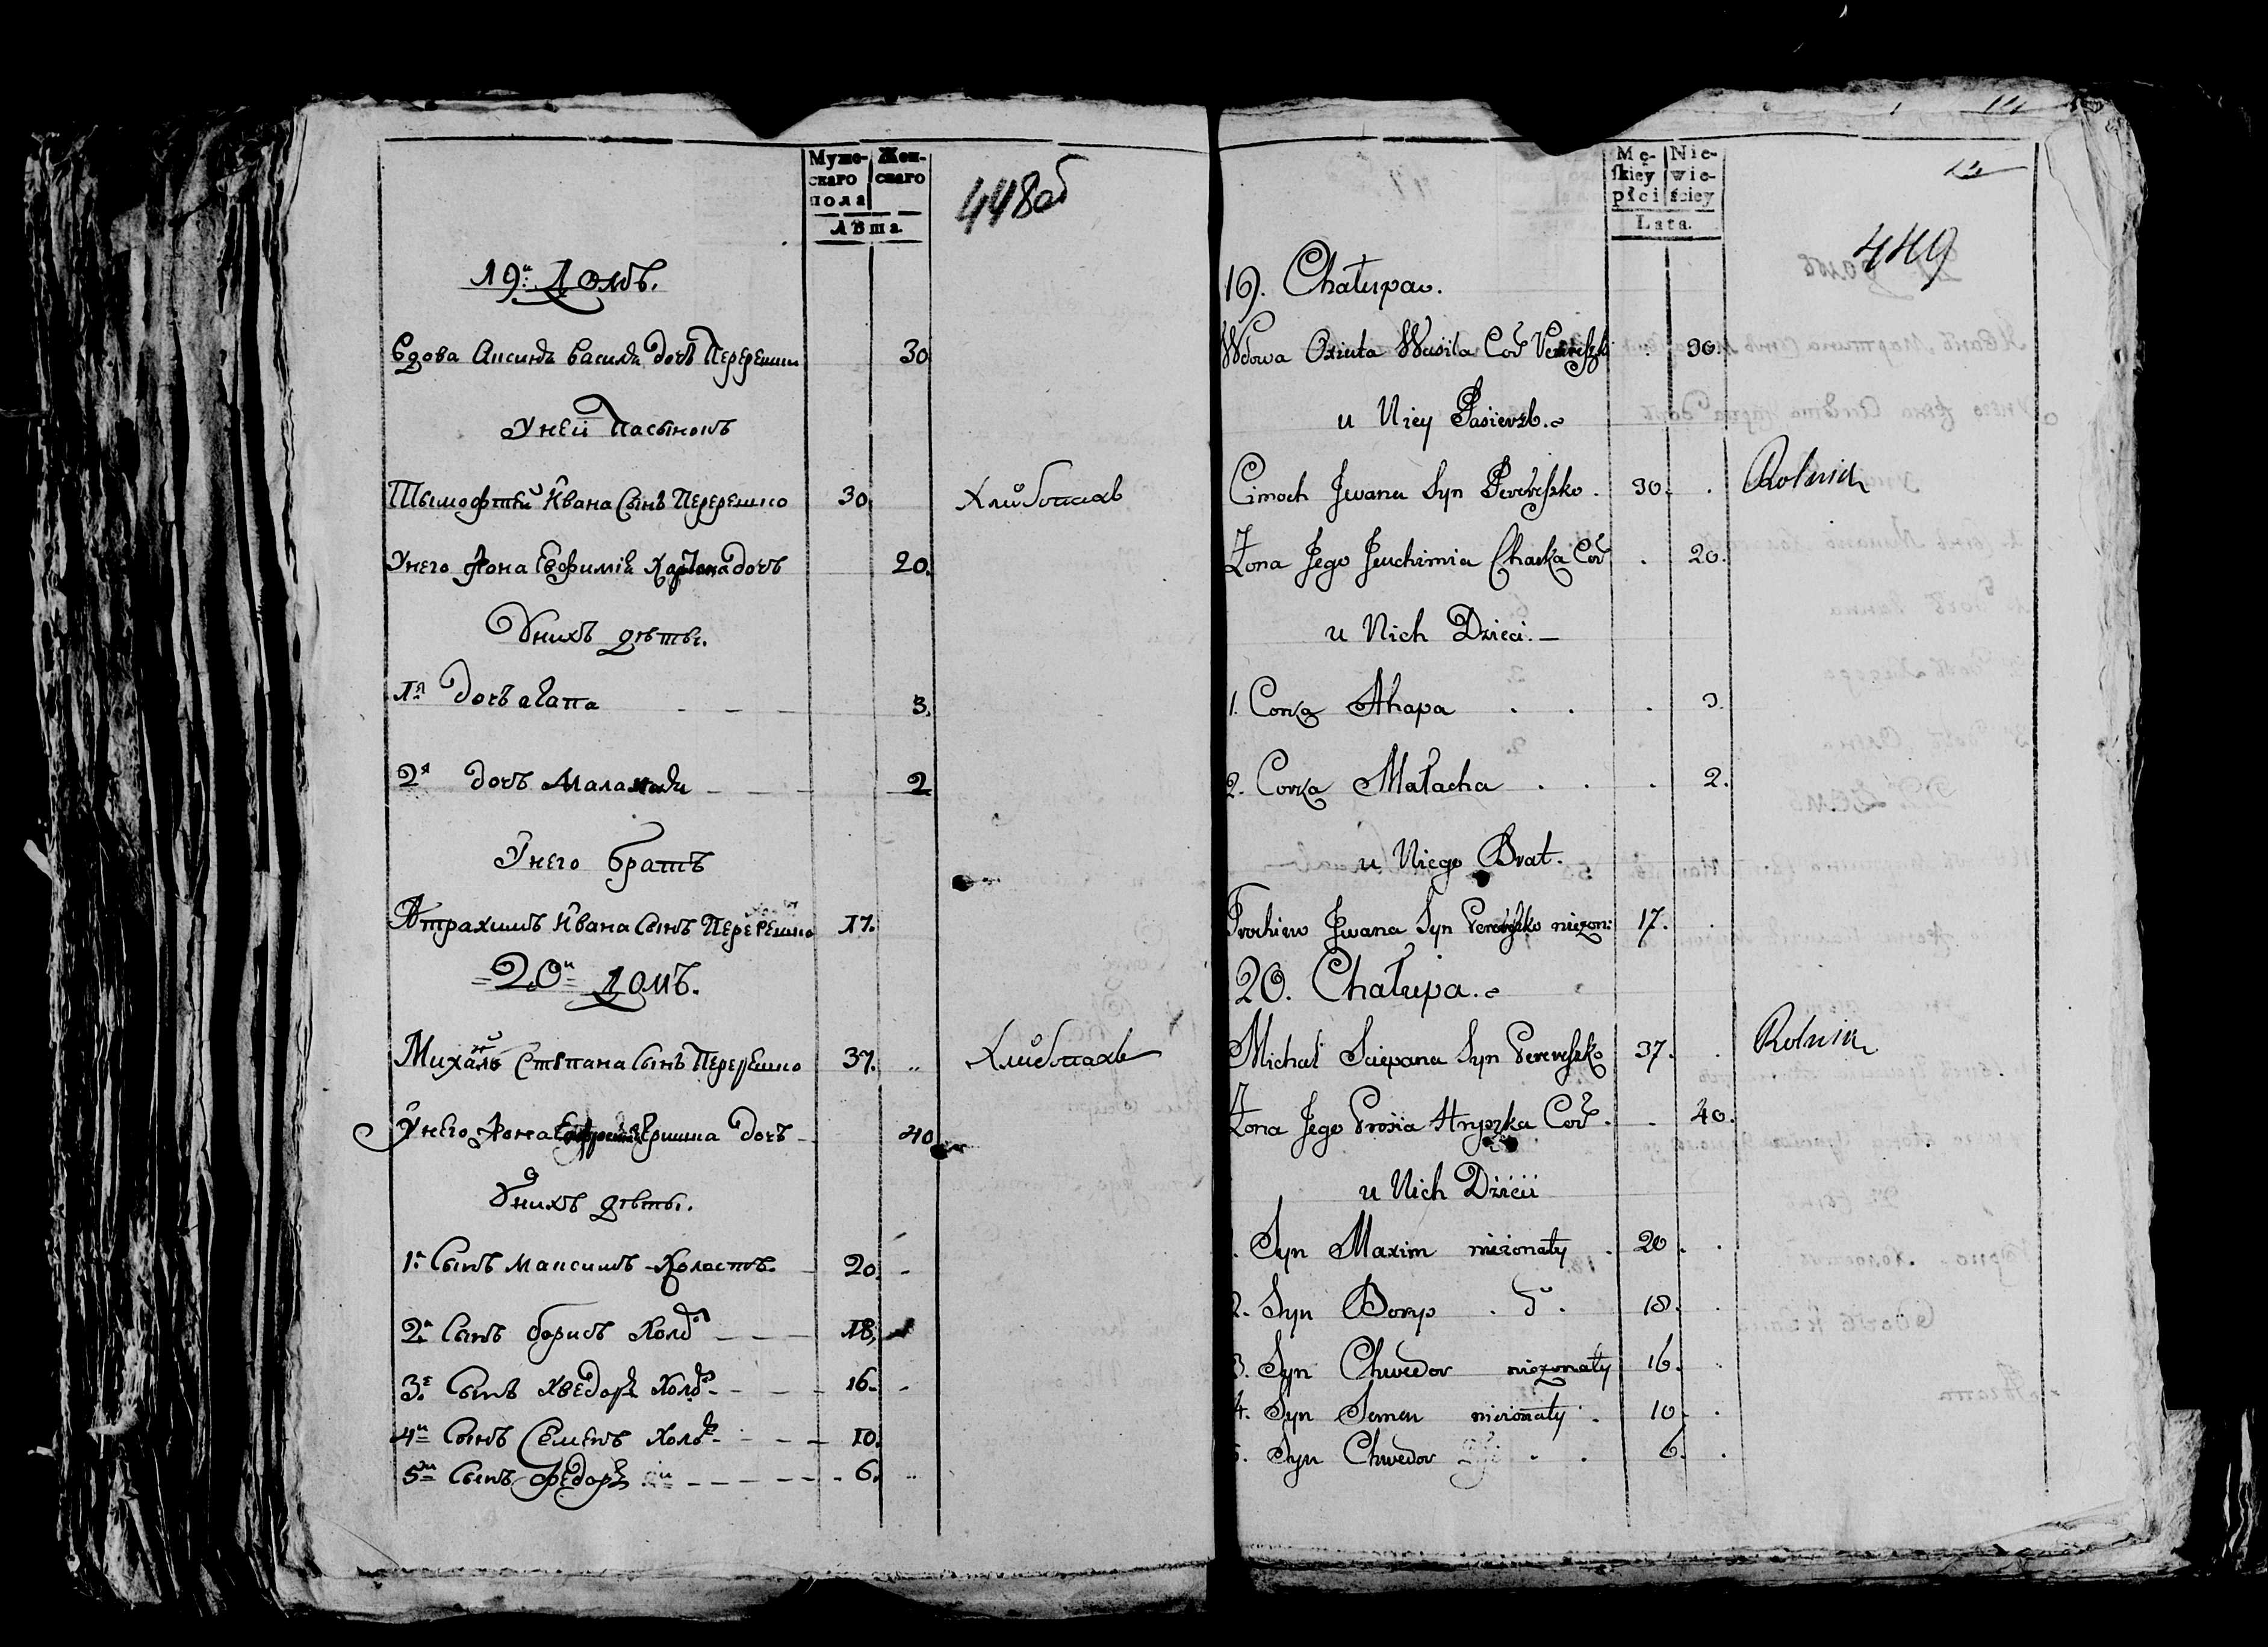 Муже-
скаго
пола
Жен-
скаго
Лѣта.
448об
19й Домъ.
Вдова Аксинья Василя дочь Перерешки 30
У ней Пасынокъ
Тымофтей Ивана Сынъ Перерешко 30. Хлибопашъ
У него Жона Евфиміа дочъ 20.
У нихъ дѣты.
1я дочъ агапа 3.
2я дочъ 2
У него братъ
Атрахимъ Ивана Сынъ Перерешко 17.
20й Домъ.
Михалъ Стѣпана Сынъ Перерешко 37. Хлибопашъ
У него Жона Гришка дочъ 40
У нихъ дѣты.
1й Сынъ Максимъ Холостъ. 20.
2й Сынъ борисъ Холо 18.
3й Сынъ хведоръ Холо 16.
4й Сынъ Семенъ Холо 10.
5й Сынъ Федоръ 6.
Mę-
skiey
płci
Nie-
wie-
ściey
Lata.
12
449
19. Chałupa.
Wdowa Oxiuta Wasila Cor 30.
u Niey Pasierzb.
Cimoch Jwana Syn Perereszko. 30. Rolnik
Zona Jego Jeuchimia Chacka Cor 20.
u Nich Dzieci.
1. Corka Ahapa 3.
2. Corka Małacha 2.
u Niego Brat.
Trochim Jwana Syn Perereszko niezon: 17.
20. Chałupa.
Michał Sciepana Syn Perereszko 37. Rolnik
Zona Jego Prosia Hryszka Cor. 40.
u Nich Dzieci
. Syn Maxim nieżonaty 20.
2. Syn Borys do. 18.
3. Syn Chwedor niezonaty 16.
4. Syn Semen nieżonaty 10.
5. Syn Chwedor 6.